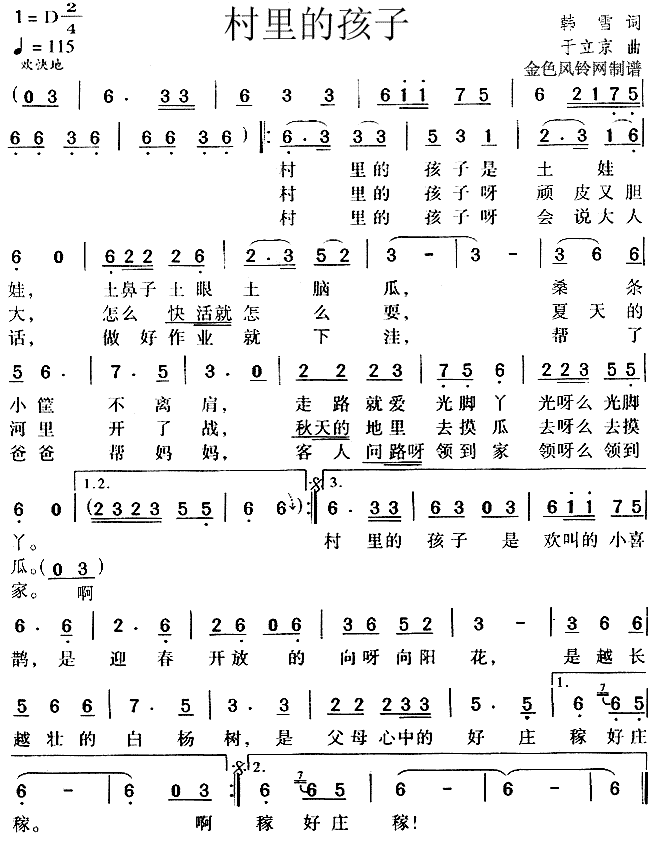 村里的孩子
1=D 2/4
♩=115
欢快地
韩雪 词
于立京 曲
金色风铃网制谱
(0 3) | 6 · 3 3 | 6 3 3 | 6 i i 7 5 | 6 2 1 7 5 |
6 6 3 6 | 6 6 3 6) ‖: 6 · 3 3 3 | 5 3 1 | 2 · 3 1 6 |
村 里的 孩子是 土 娃
村 里的 孩子呀 顽皮又胆
村 里的 孩子呀 会说大人
6 0 | 6 2 2 2 6 | 2 · 3 5 2 | 3 - | 3 - | 3 6 6 |
娃, 土鼻子土眼土 脑瓜, 桑条
大, 怎么快活就怎么耍, 夏天的
话, 做好作业就下洼, 帮了
5 6 · | 7 · 5 | 3 · 0 | 2 2 2 3 | 7 5 6 | 2 2 3 5 5 |
小筐 不离肩, 走路就爱 光脚丫 光呀么光脚
河里 开了战, 秋天的地里 去摸瓜 去呀么去摸
爸爸 帮妈妈, 客人问路呀 领到家 领呀么领到
1.2. 3.
6 0 | (2 3 2 3 5 5 | 6 6) :‖ 6 · 3 3 | 6 3 0 3 | 6 i i 7 5 |
丫。 村 里的 孩子 是 欢叫的小喜
瓜。(0 3)
家。 啊
6 · 6 | 2 · 6 | 2 6 0 6 | 3 6 5 2 | 3 - | 3 6 6 |
鹊,是 迎春 开放 的 向呀向阳 花, 是越长
5 6 6 | 7 · 5 | 3 · 3 | 2 2 2 3 3 | 5 · 5 | 6 6 5 |
1. 7
越壮的 白杨树,是 父母心中的 好庄 稼好庄
2. 7
6 - | 6 0 3 :‖ 6 6 5 | 6 - | 6 - | 6 0 ‖
稼。 啊 稼 好庄 稼!